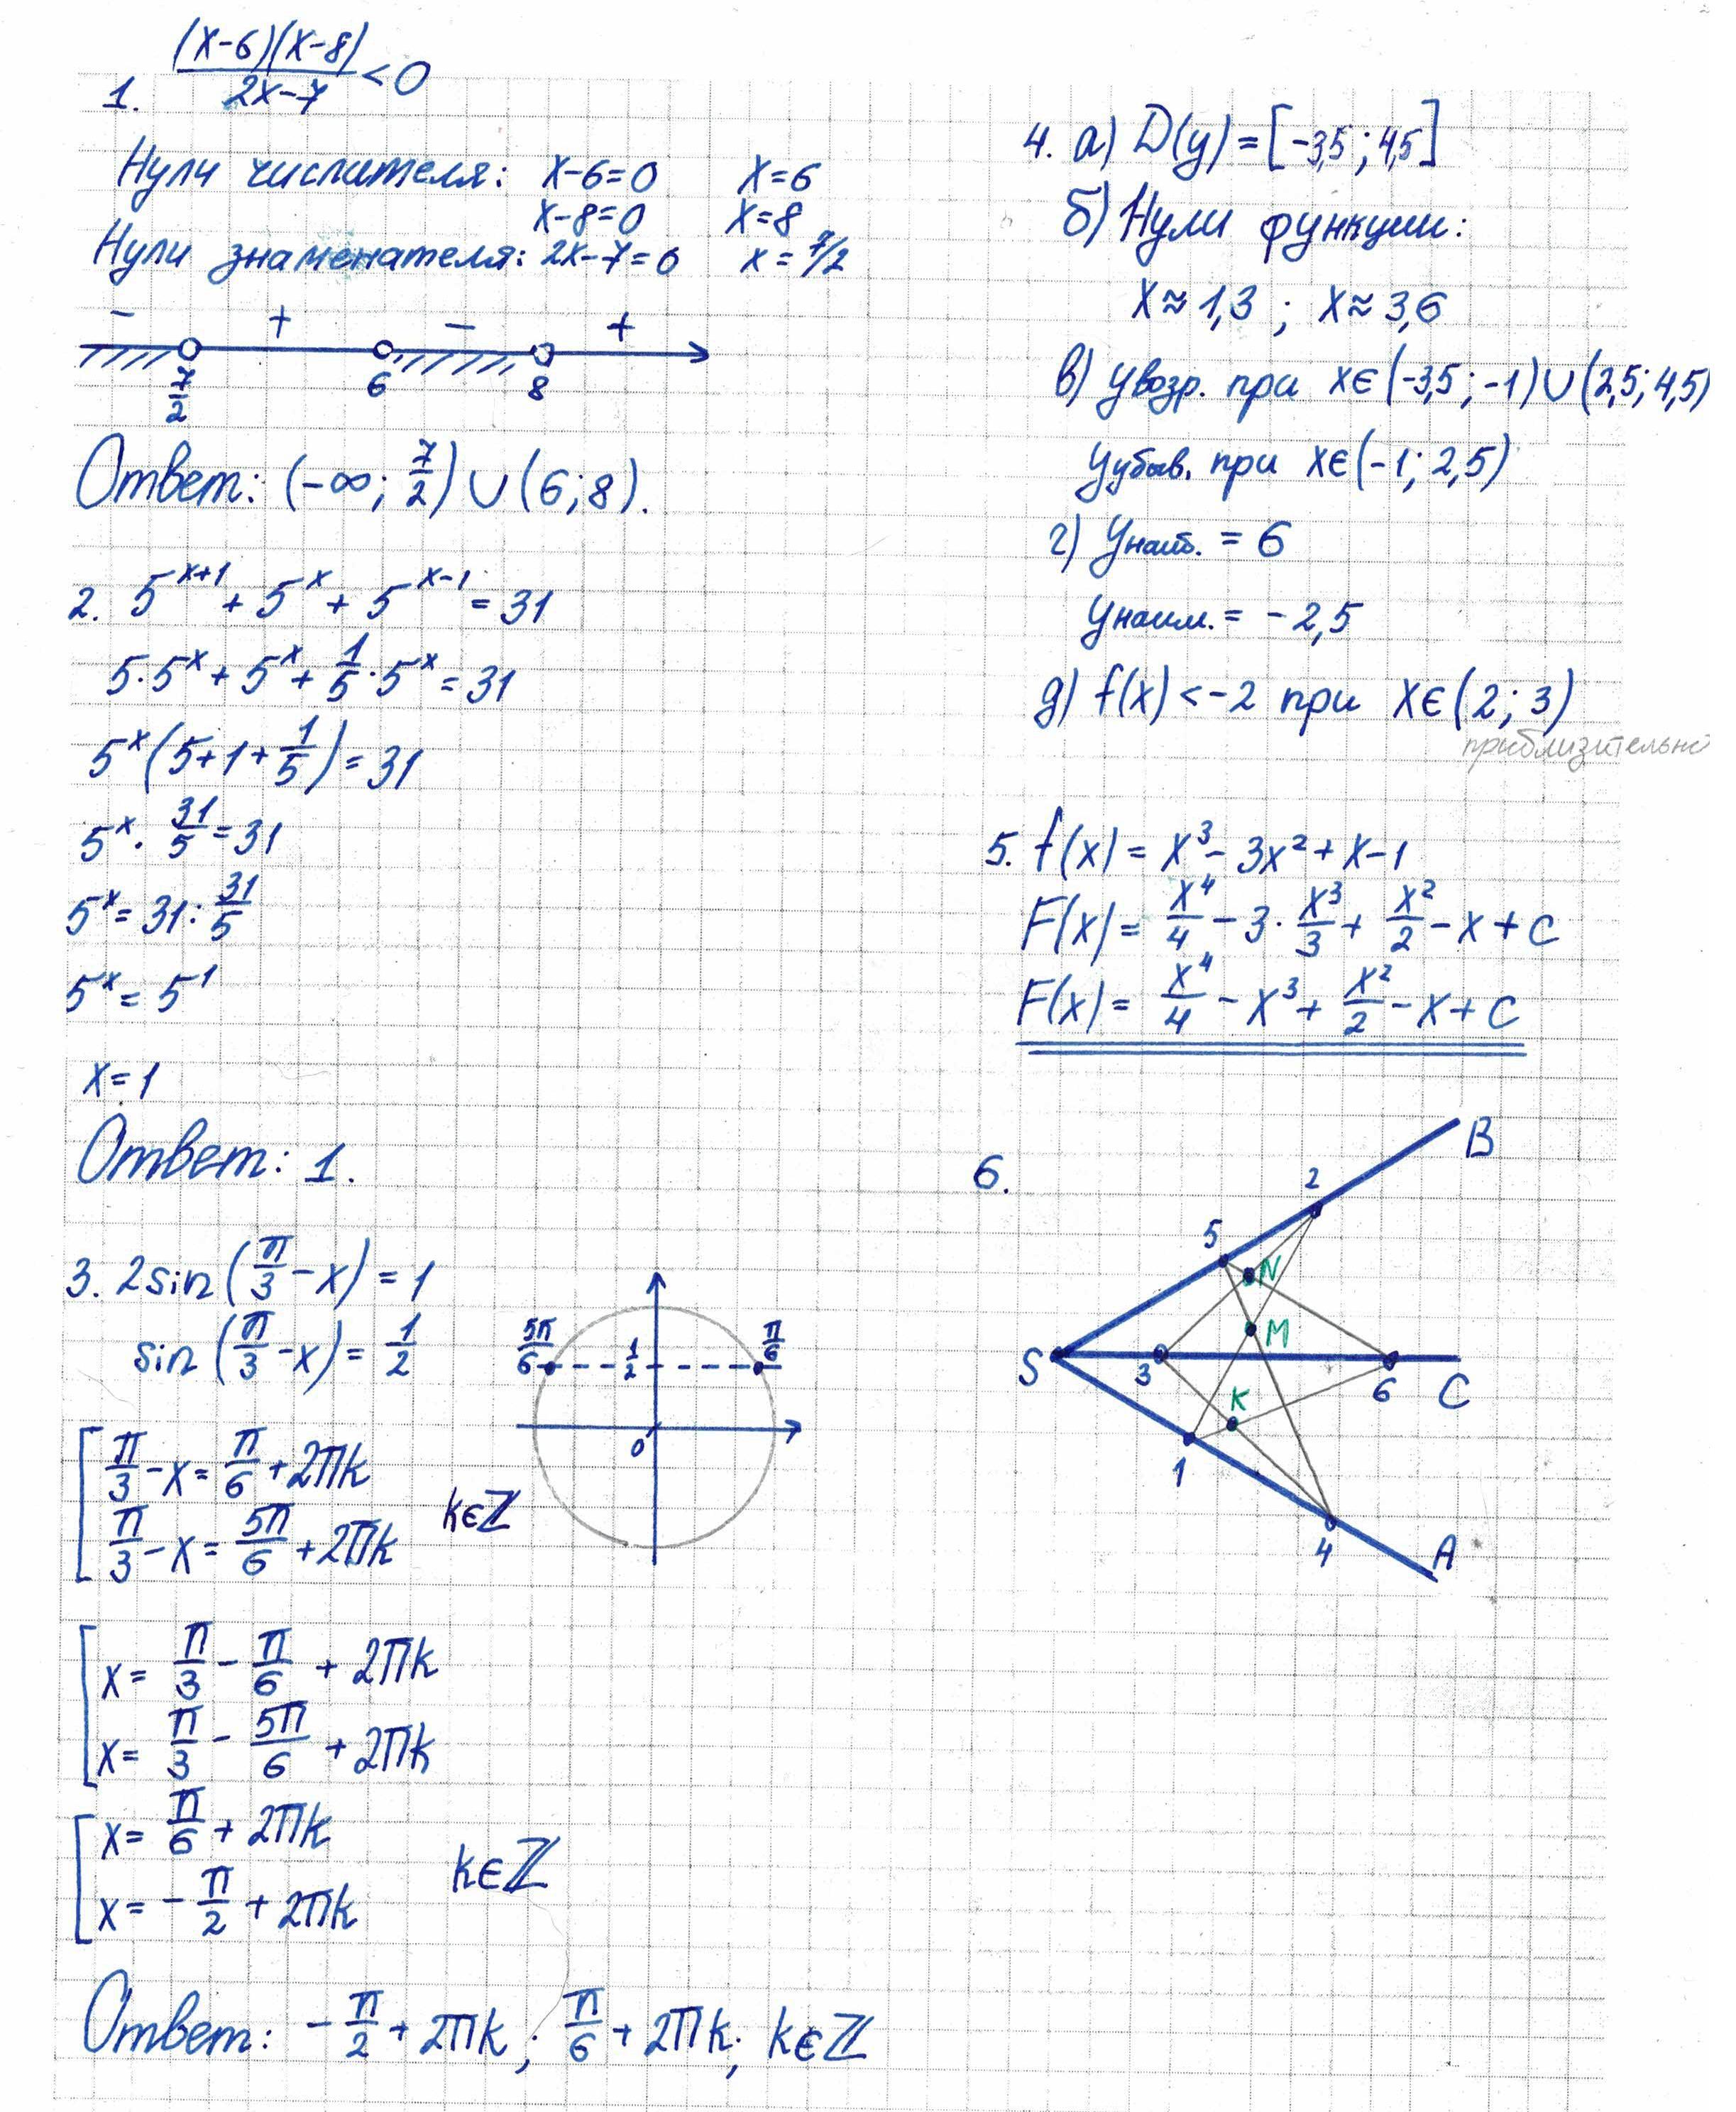 1. (x-6)(x-8)/(2x-7) < 0
Нули числителя: x-6=0 x=6
x-8=0 x=8
Нули знаменателя: 2x-7=0 x=7/2
- + - +
7/2 6 8
Ответ: (-∞; 7/2) ∪ (6; 8).
2. 5^(x+1) + 5^x + 5^(x-1) = 31
5·5^x + 5^x + 1/5·5^x = 31
5^x(5+1+1/5) = 31
5^x · 31/5 = 31
5^x = 31 : 31/5
5^x = 5^1
x=1
Ответ: 1.
3. 2sin(π/3 - x) = 1
sin(π/3 - x) = 1/2
5π/6 1/2 π/6
0
[π/3 - x = π/6 + 2πk
π/3 - x = 5π/6 + 2πk k∈ℤ
[x = π/3 - π/6 + 2πk
x = π/3 - 5π/6 + 2πk
[x = π/6 + 2πk
x = -π/2 + 2πk k∈ℤ
Ответ: -π/2 + 2πk; π/6 + 2πk; k∈ℤ
4. а) D(y) = [-3,5; 4,5]
б) Нули функции:
x≈1,3; x≈3,6
в) yвозр. при x∈(-3,5; -1)∪(2,5; 4,5)
yубыв. при x∈(-1; 2,5)
г) yнаиб. = 6
yнаим. = -2,5
д) f(x) < -2 при x∈(2; 3)
приблизительно
5. f(x) = x³ - 3x² + x - 1
F(x) = x⁴/4 - 3·x³/3 + x²/2 - x + C
F(x) = x⁴/4 - x³ + x²/2 - x + C
6.
B
2
5
N
M
S 3 6 C
K
1
4 A